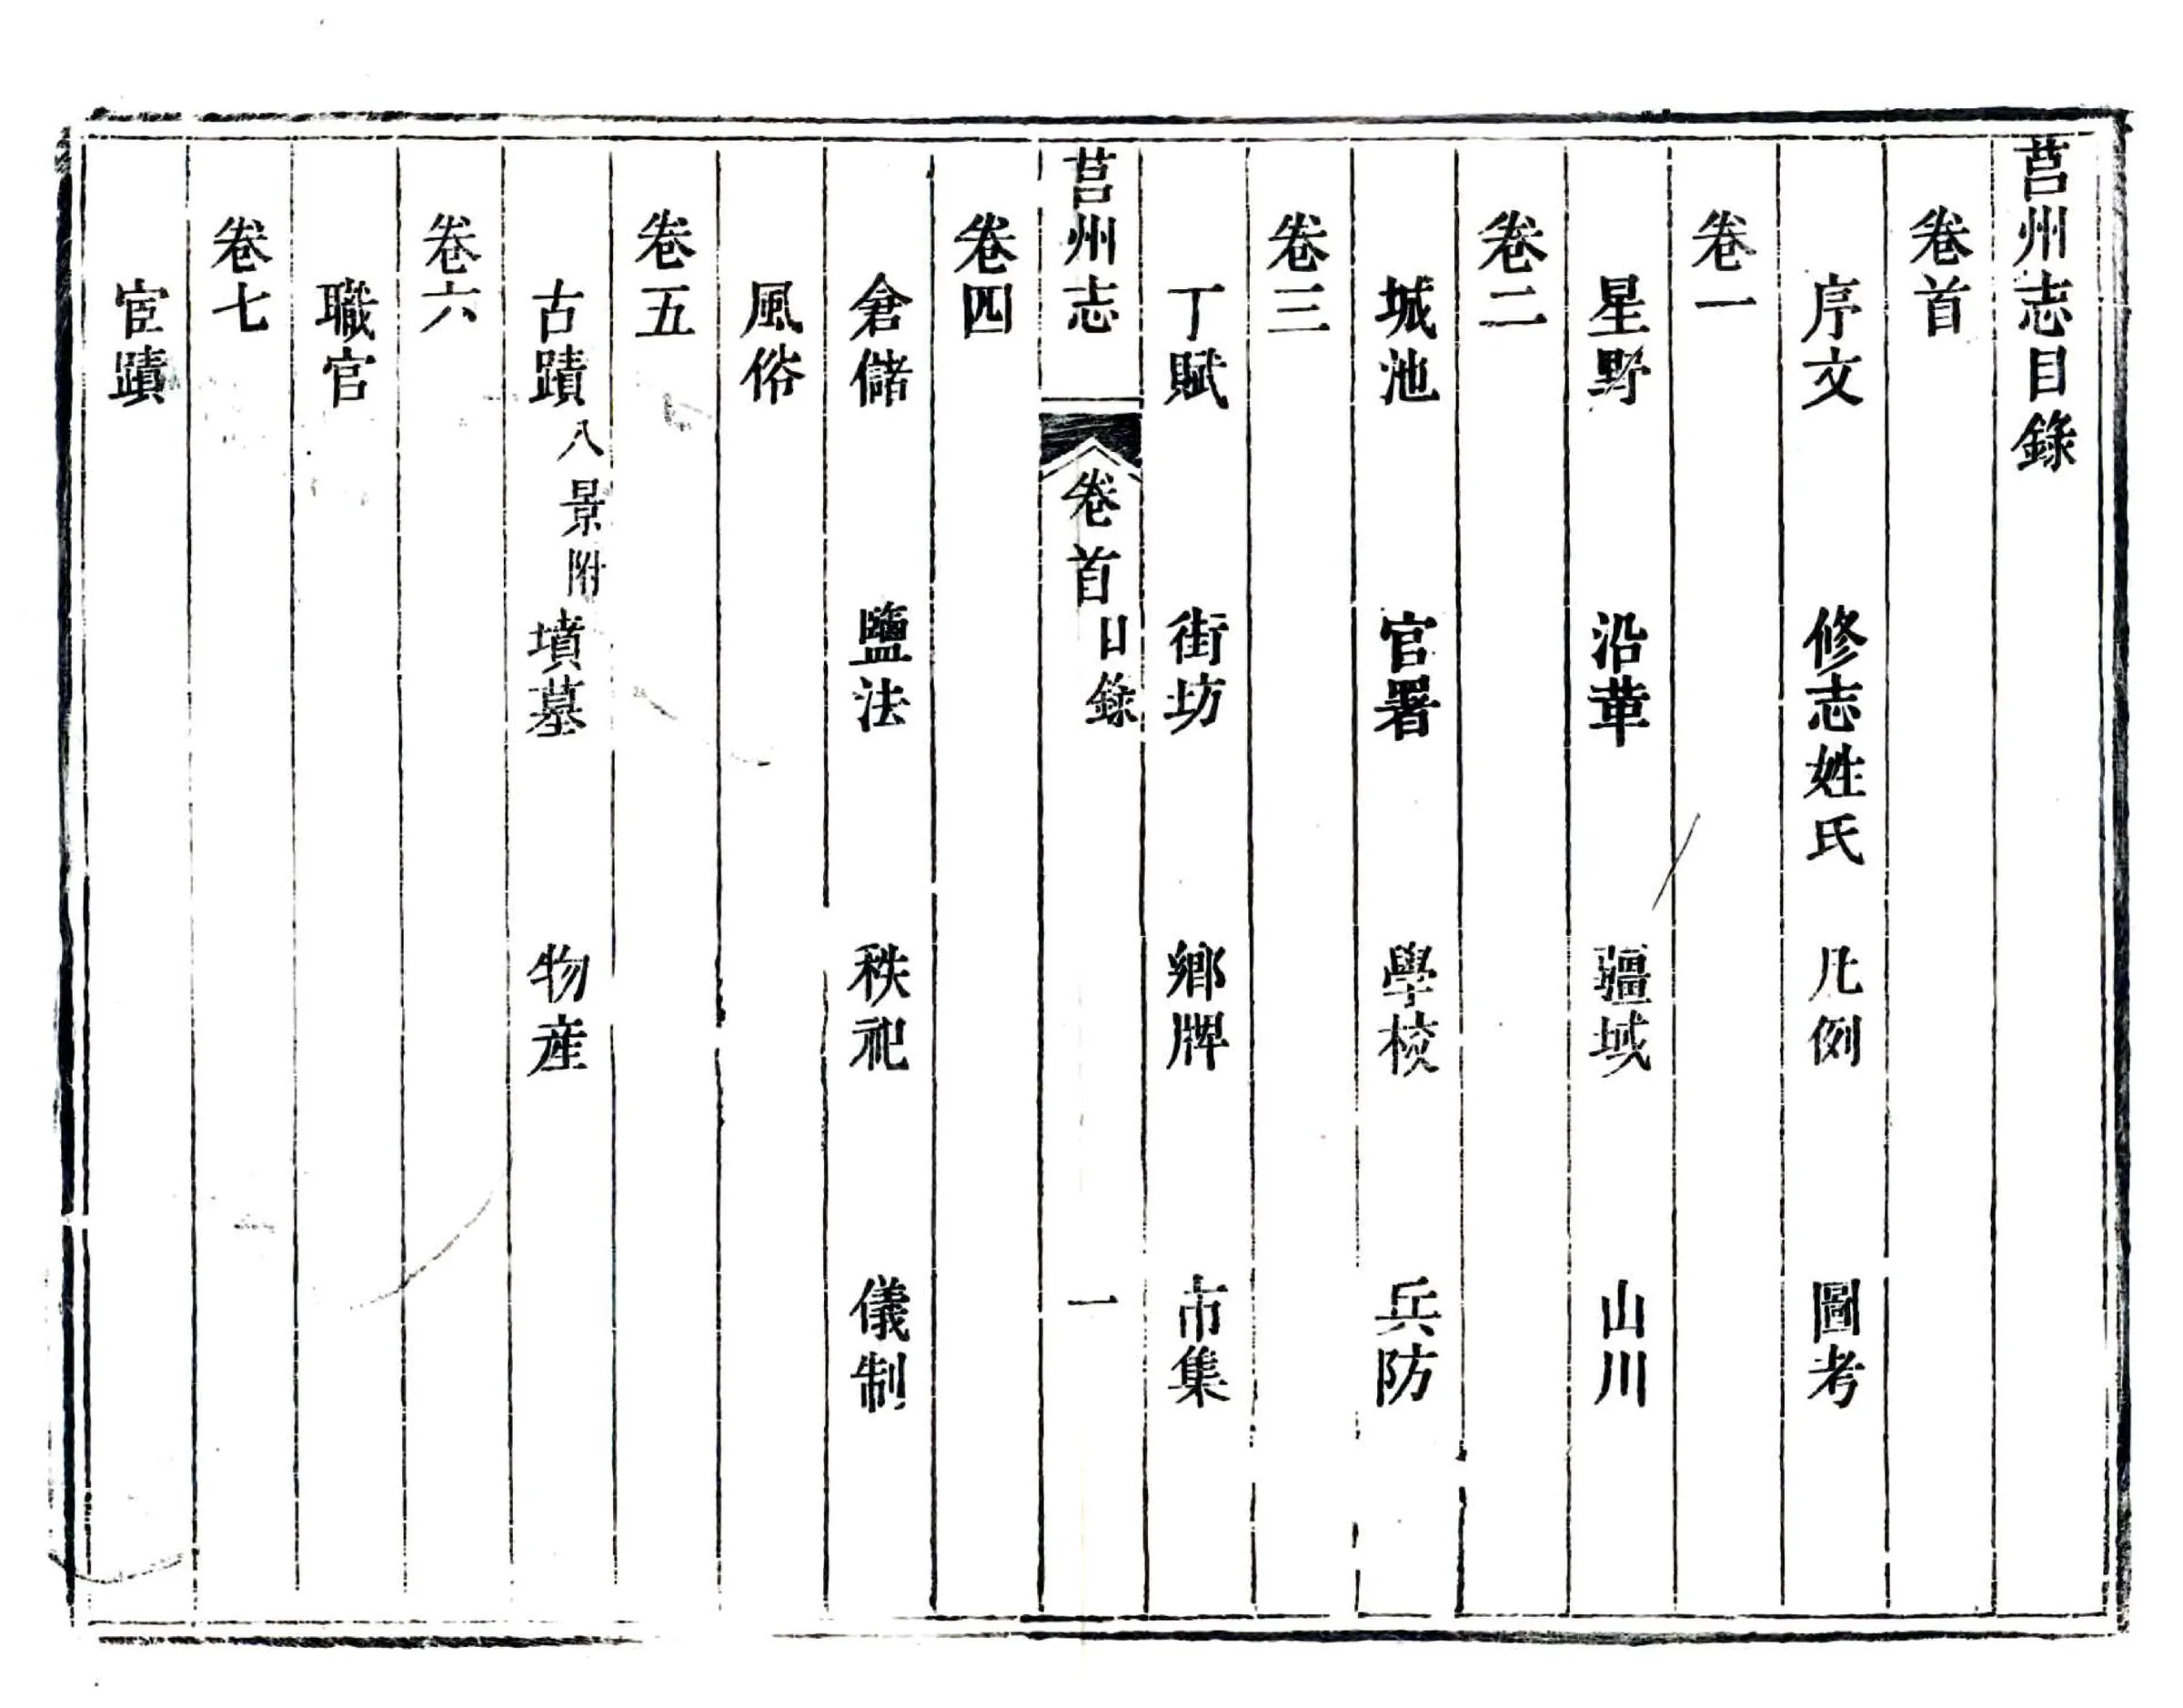 莒州志目錄
卷首
序文 修志姓氏 凡例 圖考
卷一
星野 沿革 疆域 山川
卷二
城池 官署 學校 兵防
卷三
丁賦 街坊 鄉牌 市集
莒州志 卷首 目錄 一
卷四
倉儲 鹽法 秩祀 儀制
風俗
卷五
古蹟 八景附 墳墓 物産
卷六
職官
卷七
宦蹟